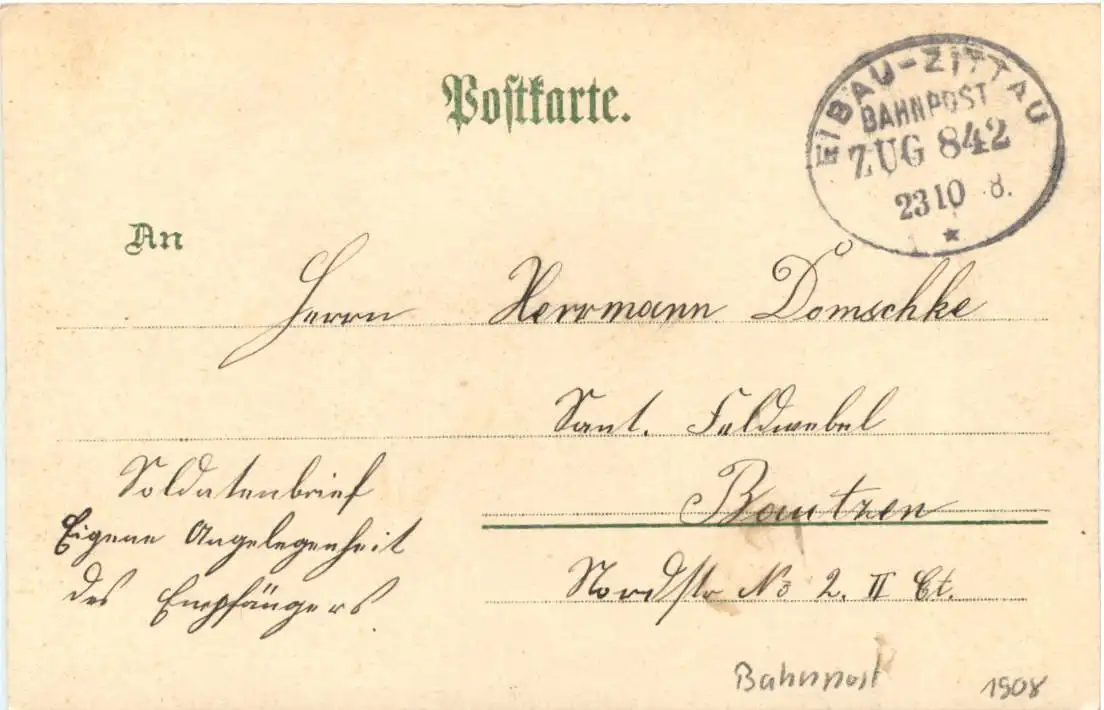 Postkarte.
EIBAU-ZITTAU
BAHNPOST
ZUG 842
23 10 8.
*
An
Herrn Herrmann Domschke
Sant. Feldwebel
Soldatenbrief
Bautzen
Eigene Angelegenheit
des Empfängers
Nordstr No 2. II Et.
Bahnpost
1908